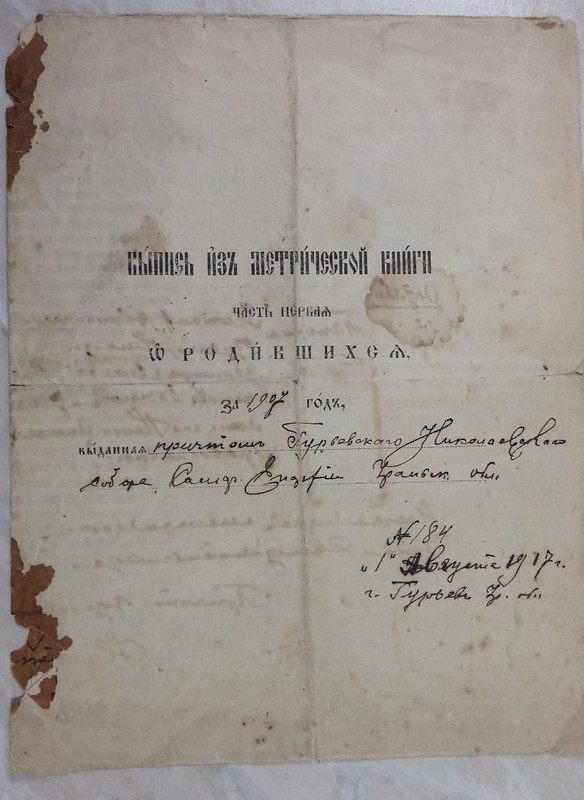 ВЫ́ПИСЬ И҆ЗЪ МЕТРИ́ЧЕСКОЙ КНИ́ГИ
ЧАСТЬ ПЕРВАЯ
Ѡ҆ РОДИ́ВШИХСѦ,
ЗА 1907 ГО́ДЪ,
ВЫ́ДАННАЯ причтомъ Гурьевскаго Николаевскаго
собора Уральск. обл.
№ 184
„1" Августа 1917 г.
г. Гурьевъ Ур. обл.